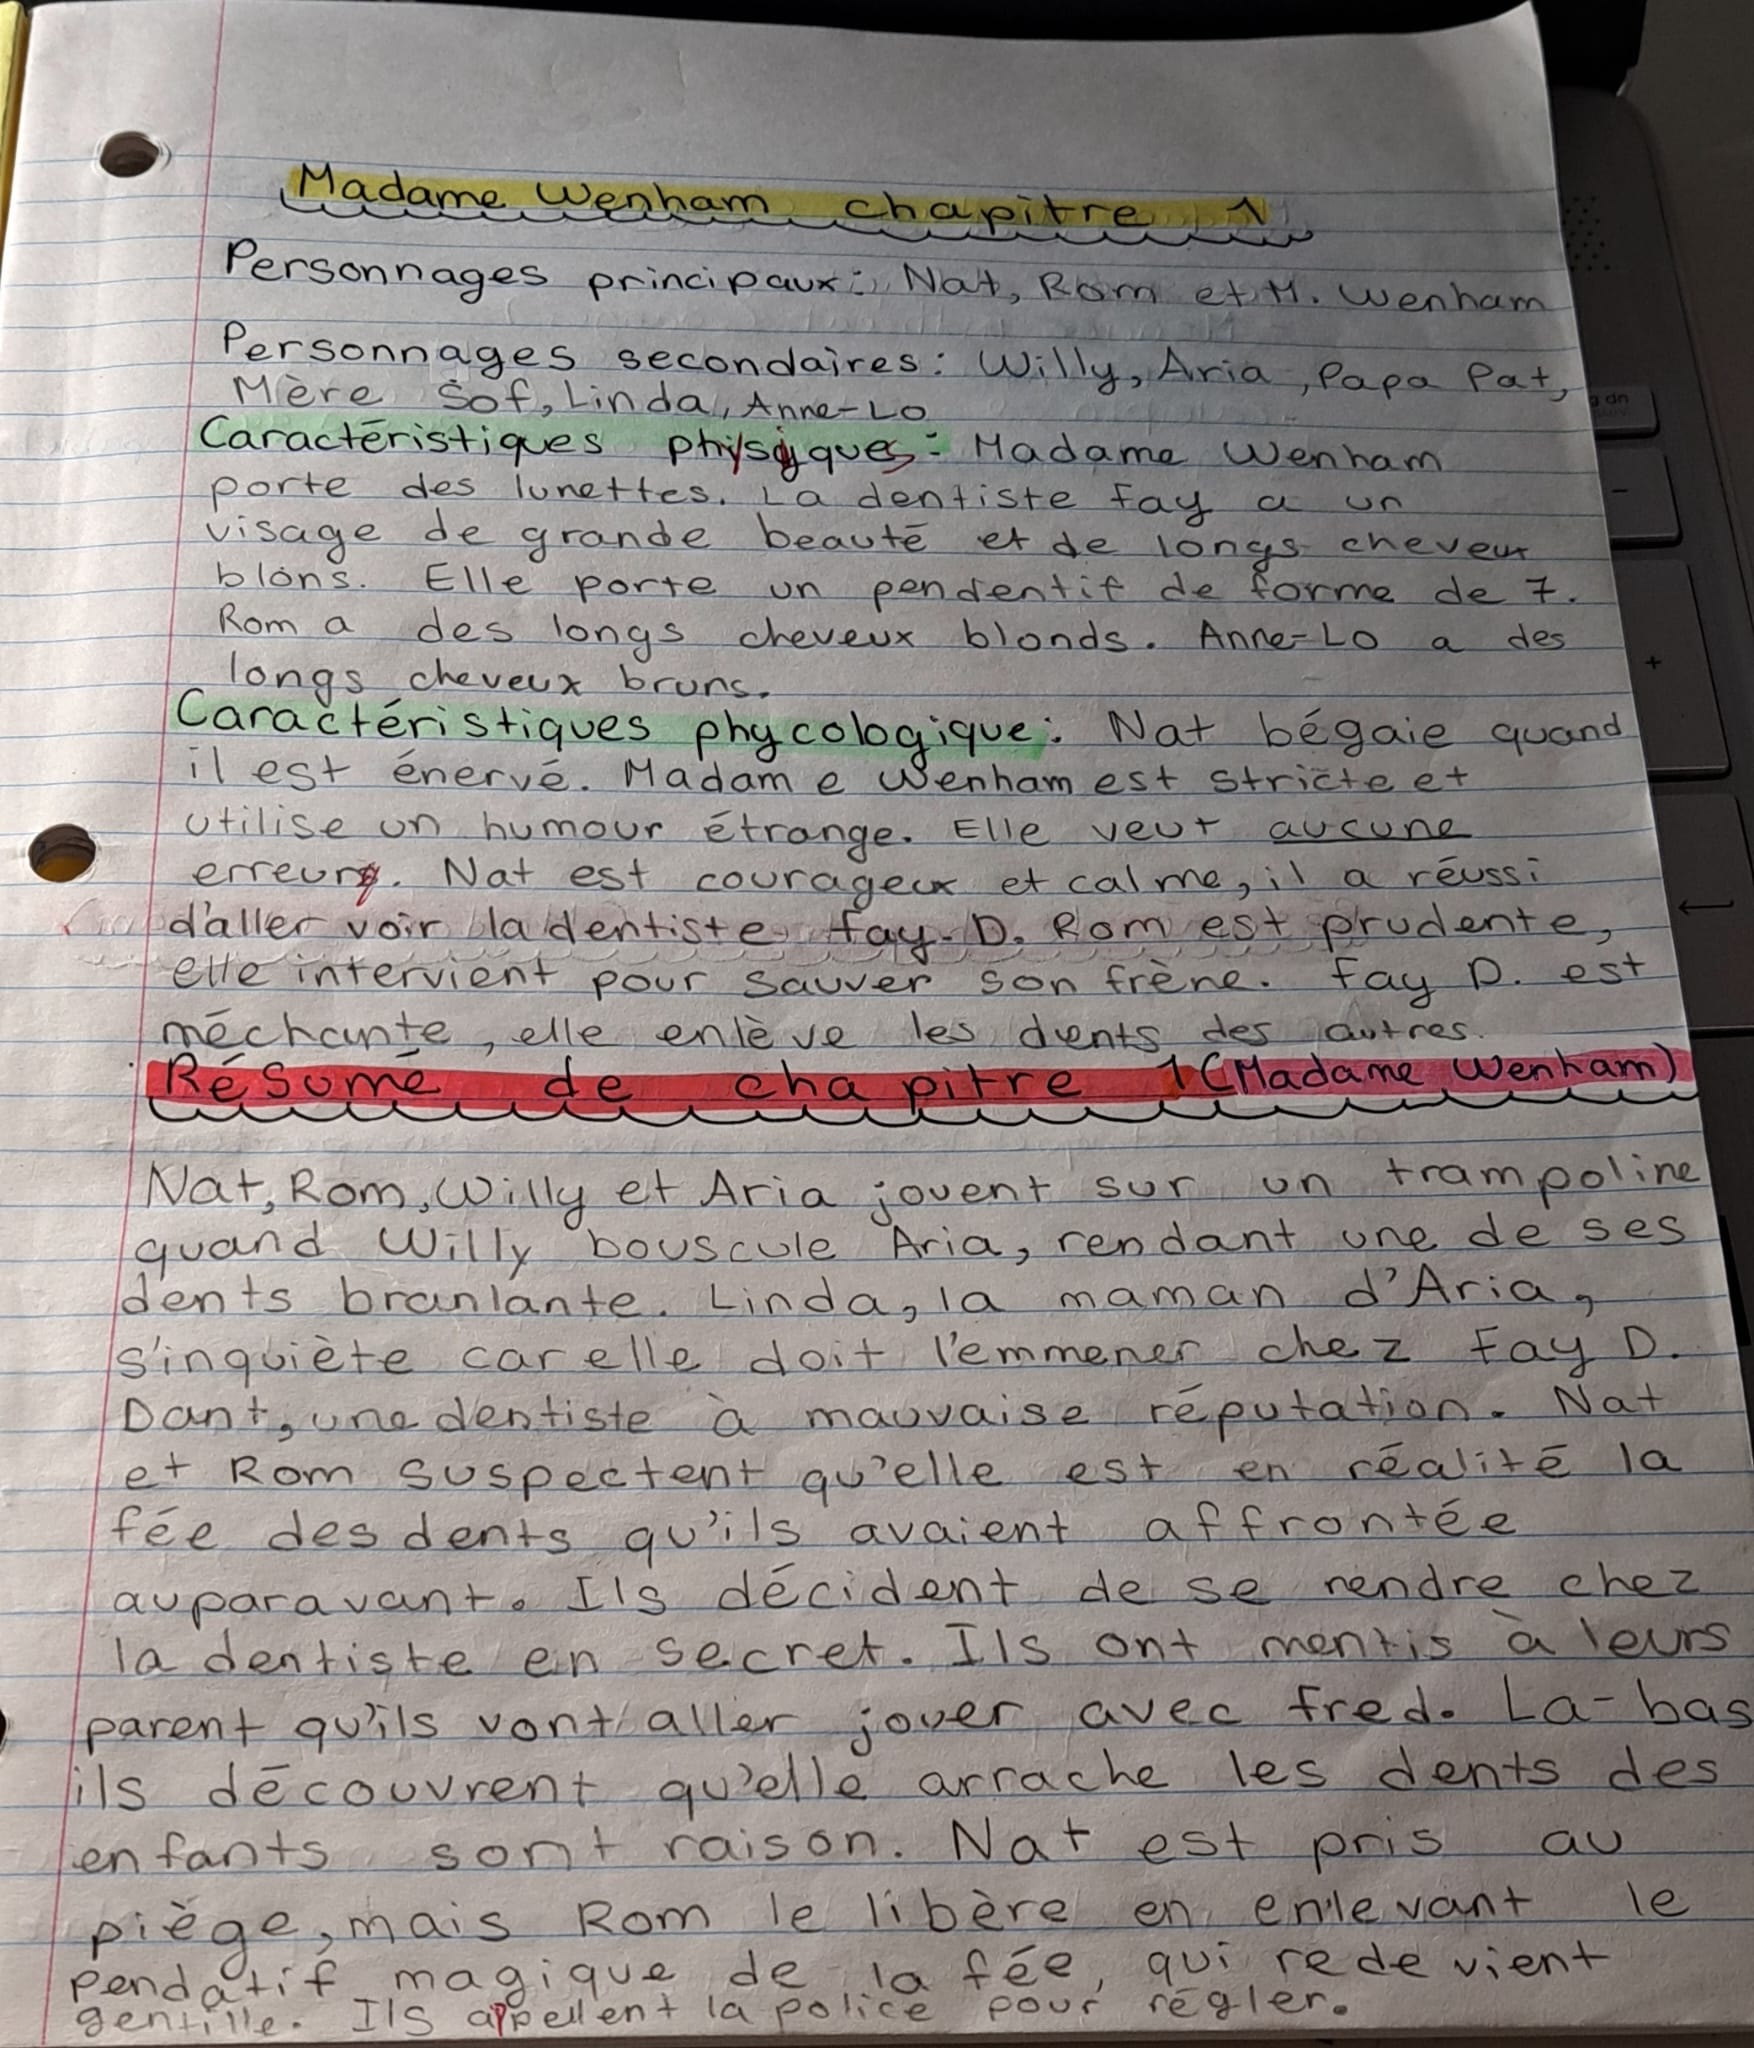 Madame Wenham chapitre 1
Personnages principaux: Nat, Rom et M. Wenham
Personnages secondaires: Willy, Aria, Papa Pat,
Mère Sof, Linda, Anne-Lo
Caractéristiques physiques: Madame Wenham
porte des lunettes. La dentiste Fay a un
visage de grande beauté et de longs cheveux
blons. Elle porte un pendentif de forme de 7.
Rom a des longs cheveux blonds. Anne-Lo a des
longs cheveux bruns.
Caractéristiques phycologique: Nat bégaie quand
il est énervé. Madame Wenham est stricte et
utilise un humour étrange. Elle veut aucune
erreur. Nat est courageux et calme, il a réussi
d'aller voir la dentiste Fay. D. Rom est prudente,
elle intervient pour sauver son frère. Fay D. est
méchante, elle enlève les dents des autres.
Résumé de chapitre 1 (Madame Wenham)
Nat, Rom, Willy et Aria jouent sur un trampoline
quand Willy bouscule Aria, rendant une de ses
dents branlante. Linda, la maman d'Aria,
s'inquiète car elle doit l'emmener chez Fay D.
Dant, une dentiste à mauvaise réputation. Nat
et Rom suspectent qu'elle est en réalité la
fée des dents qu'ils avaient affrontée
auparavant. Ils décident de se rendre chez
la dentiste en secret. Ils ont mentis à leurs
parent qu'ils vont aller jouer avec Fred. La-bas
ils découvrent qu'elle arrache les dents des
enfants sont raison. Nat est pris au
piège, mais Rom le libère en enlevant le
pendatif magique de la fée, qui redevient
gentille. Ils appellent la police pour régler.